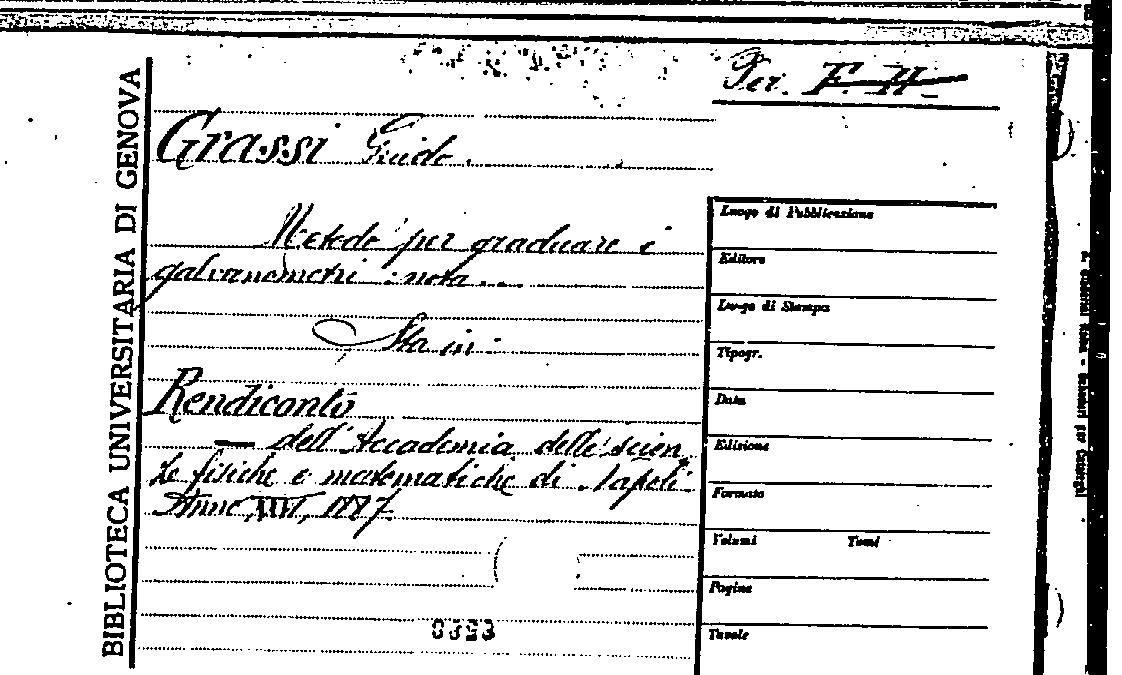 Per. F. H.
Grassi Guido.
Metodo per graduare i
galvanometri : nota...
Sta in :
Rendiconto
— dell'Accademia delle scien
ze fisiche e matematiche di Napoli
Anno XXVI, 1887.
0353
BIBLIOTECA UNIVERSITARIA DI GENOVA
Luogo di Pubblicazione
Editore
Luogo di Stampa
Tipogr.
Data
Edizione
Formato
Volumi Tomi
Pagine
Tavole